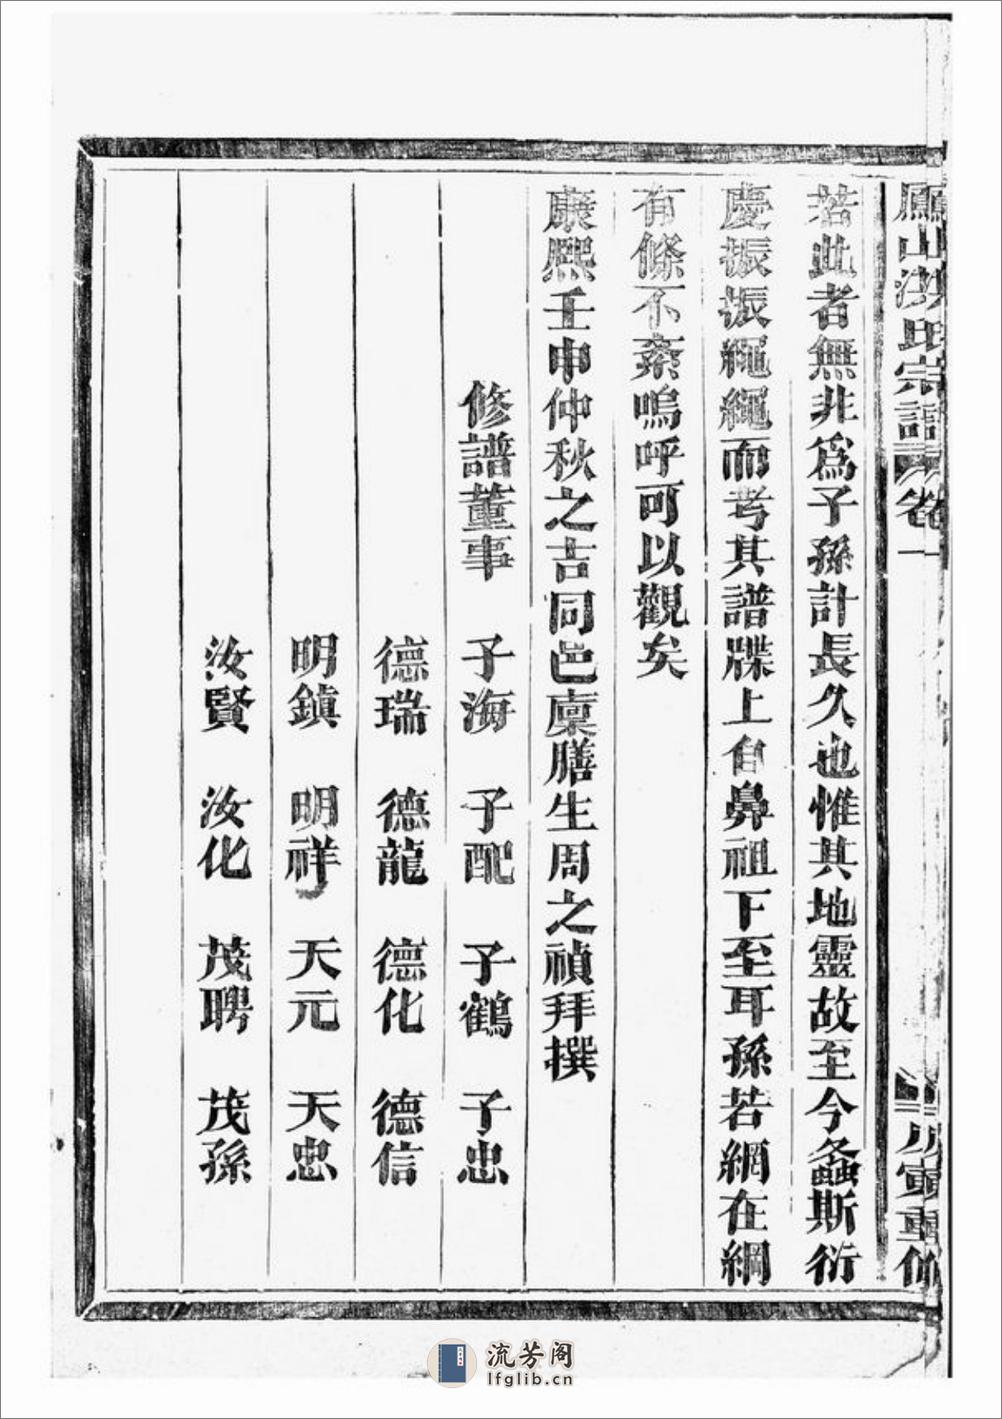 鳳山洪氏宗譜 卷一
若此者無非爲子孫計長久也惟其地靈故至今螽斯衍
慶振振繩繩而考其譜牒上自鼻祖下至耳孫若網在綱
有條不紊嗚呼可以觀矣
康熙壬申仲秋之吉同邑廩膳生周之禎拜撰
修譜董事 子海 子配 子鶴 子忠
德瑞 德龍 德化 德信
明鎮 明祥 天元 天忠
汝賢 汝化 茂聘 茂孫
流芳阁
lfglib.cn